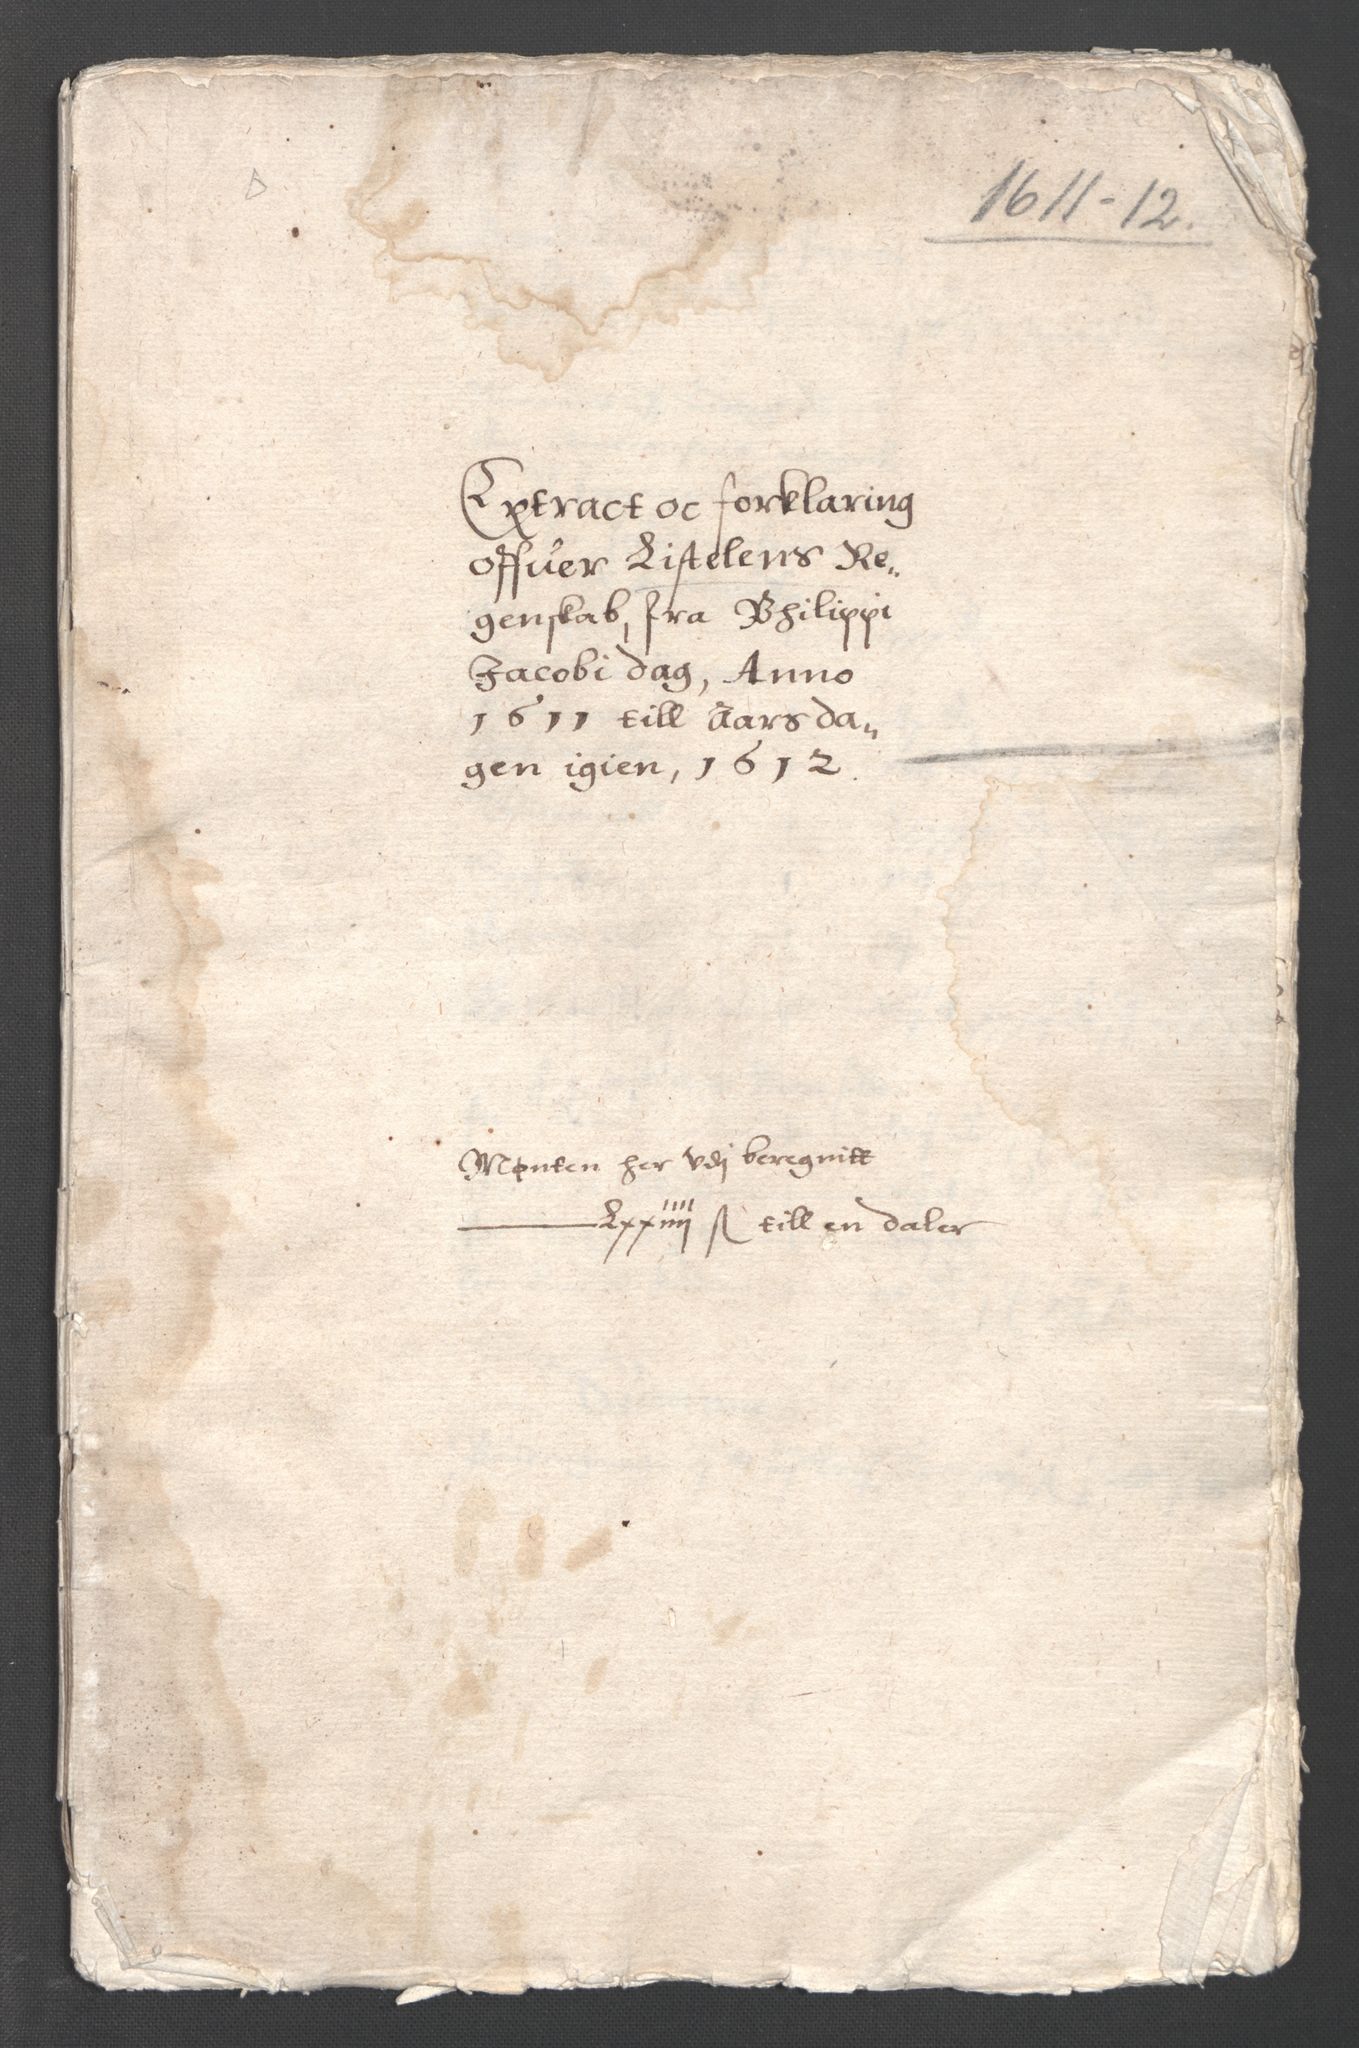 1611-12.
Extract oc forklaring
offuer Listelens Re„
genskab, fra Philippi
Jacobi dag, Anno
1611 till Aarsda„
gen igien, 1612.
Mønten her vdj beregnitt
Lxxiiij ß till en daler